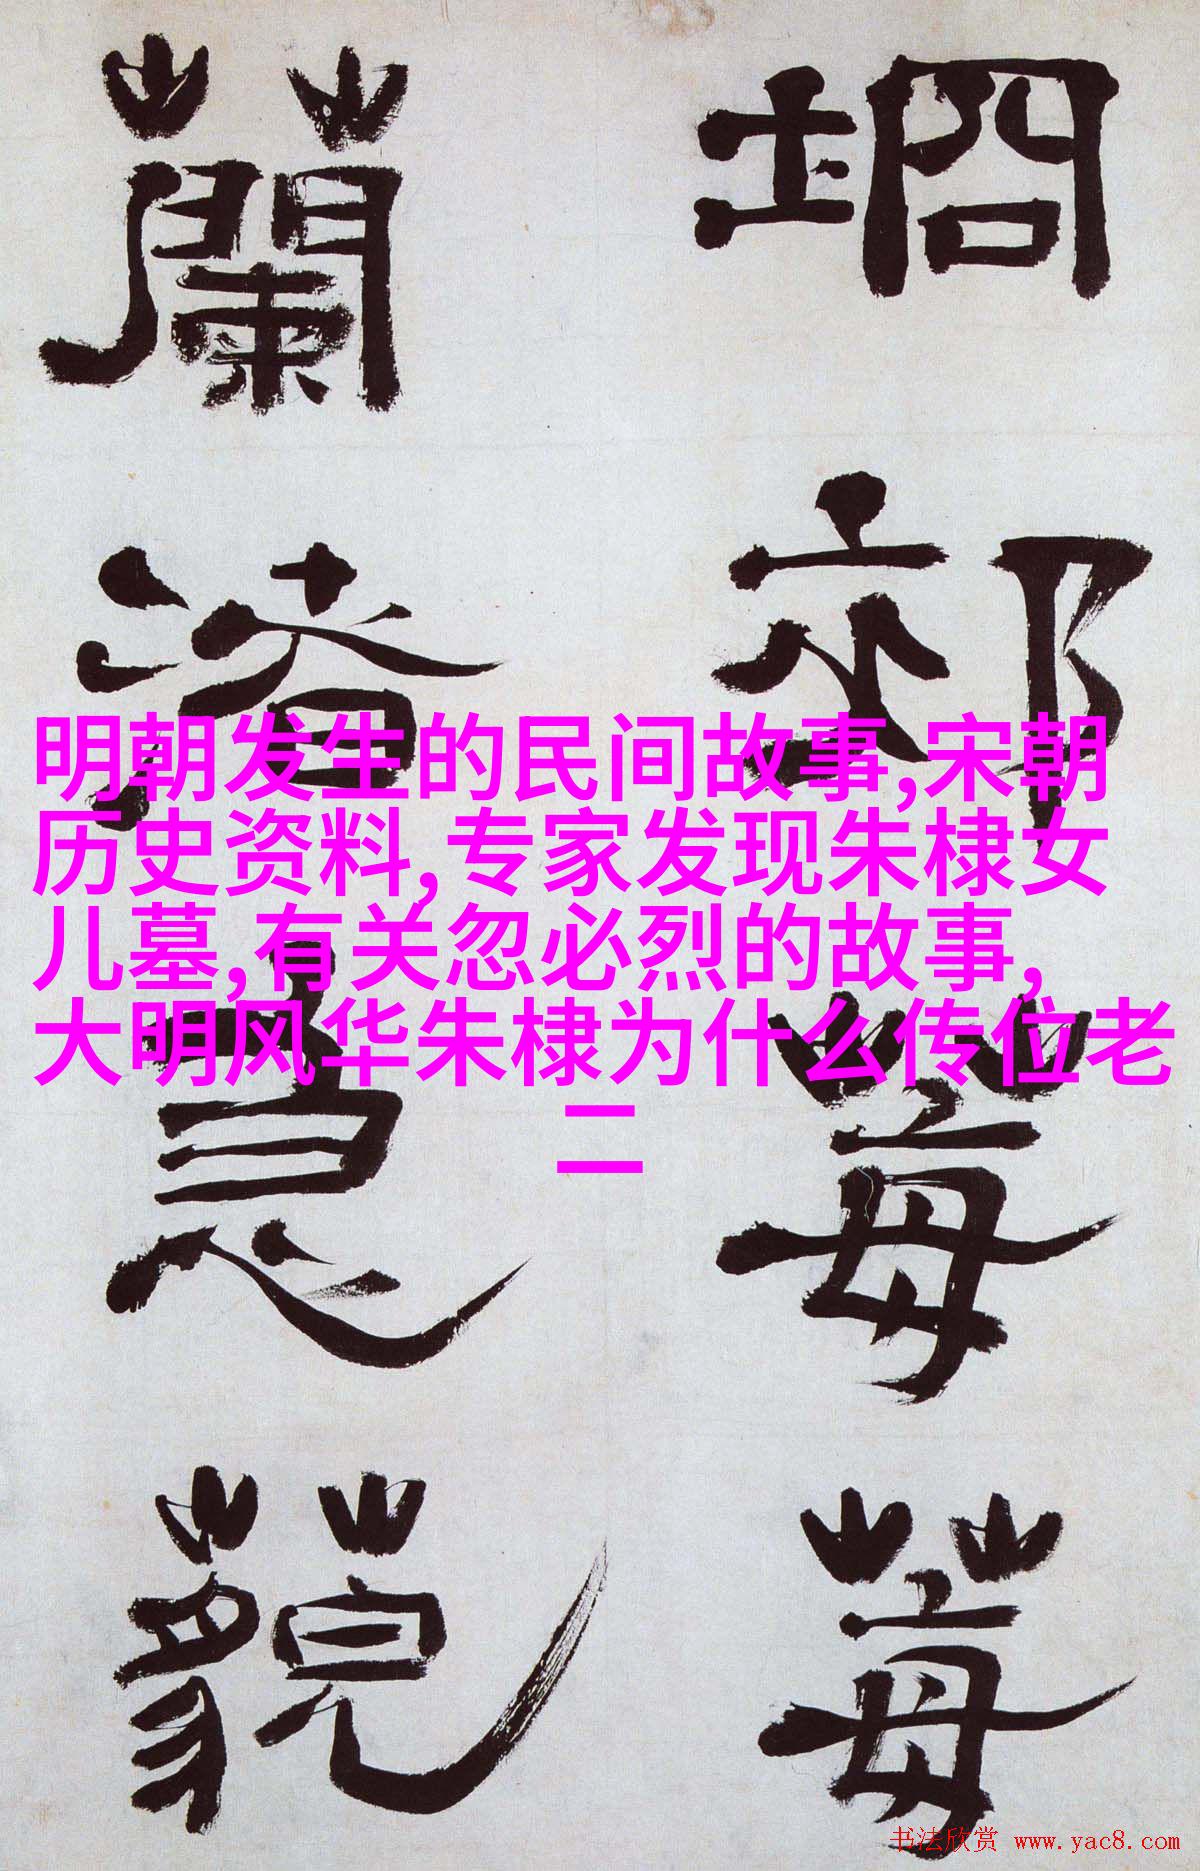 坰郊莓莓
蘭渚藐
明朝发生的民间故事,宋朝
历史资料,专家发现朱棣女
儿墓,有关忽必烈的故事,
大明风华朱棣为什么传位老
二
书法欣赏 www.yac8.com